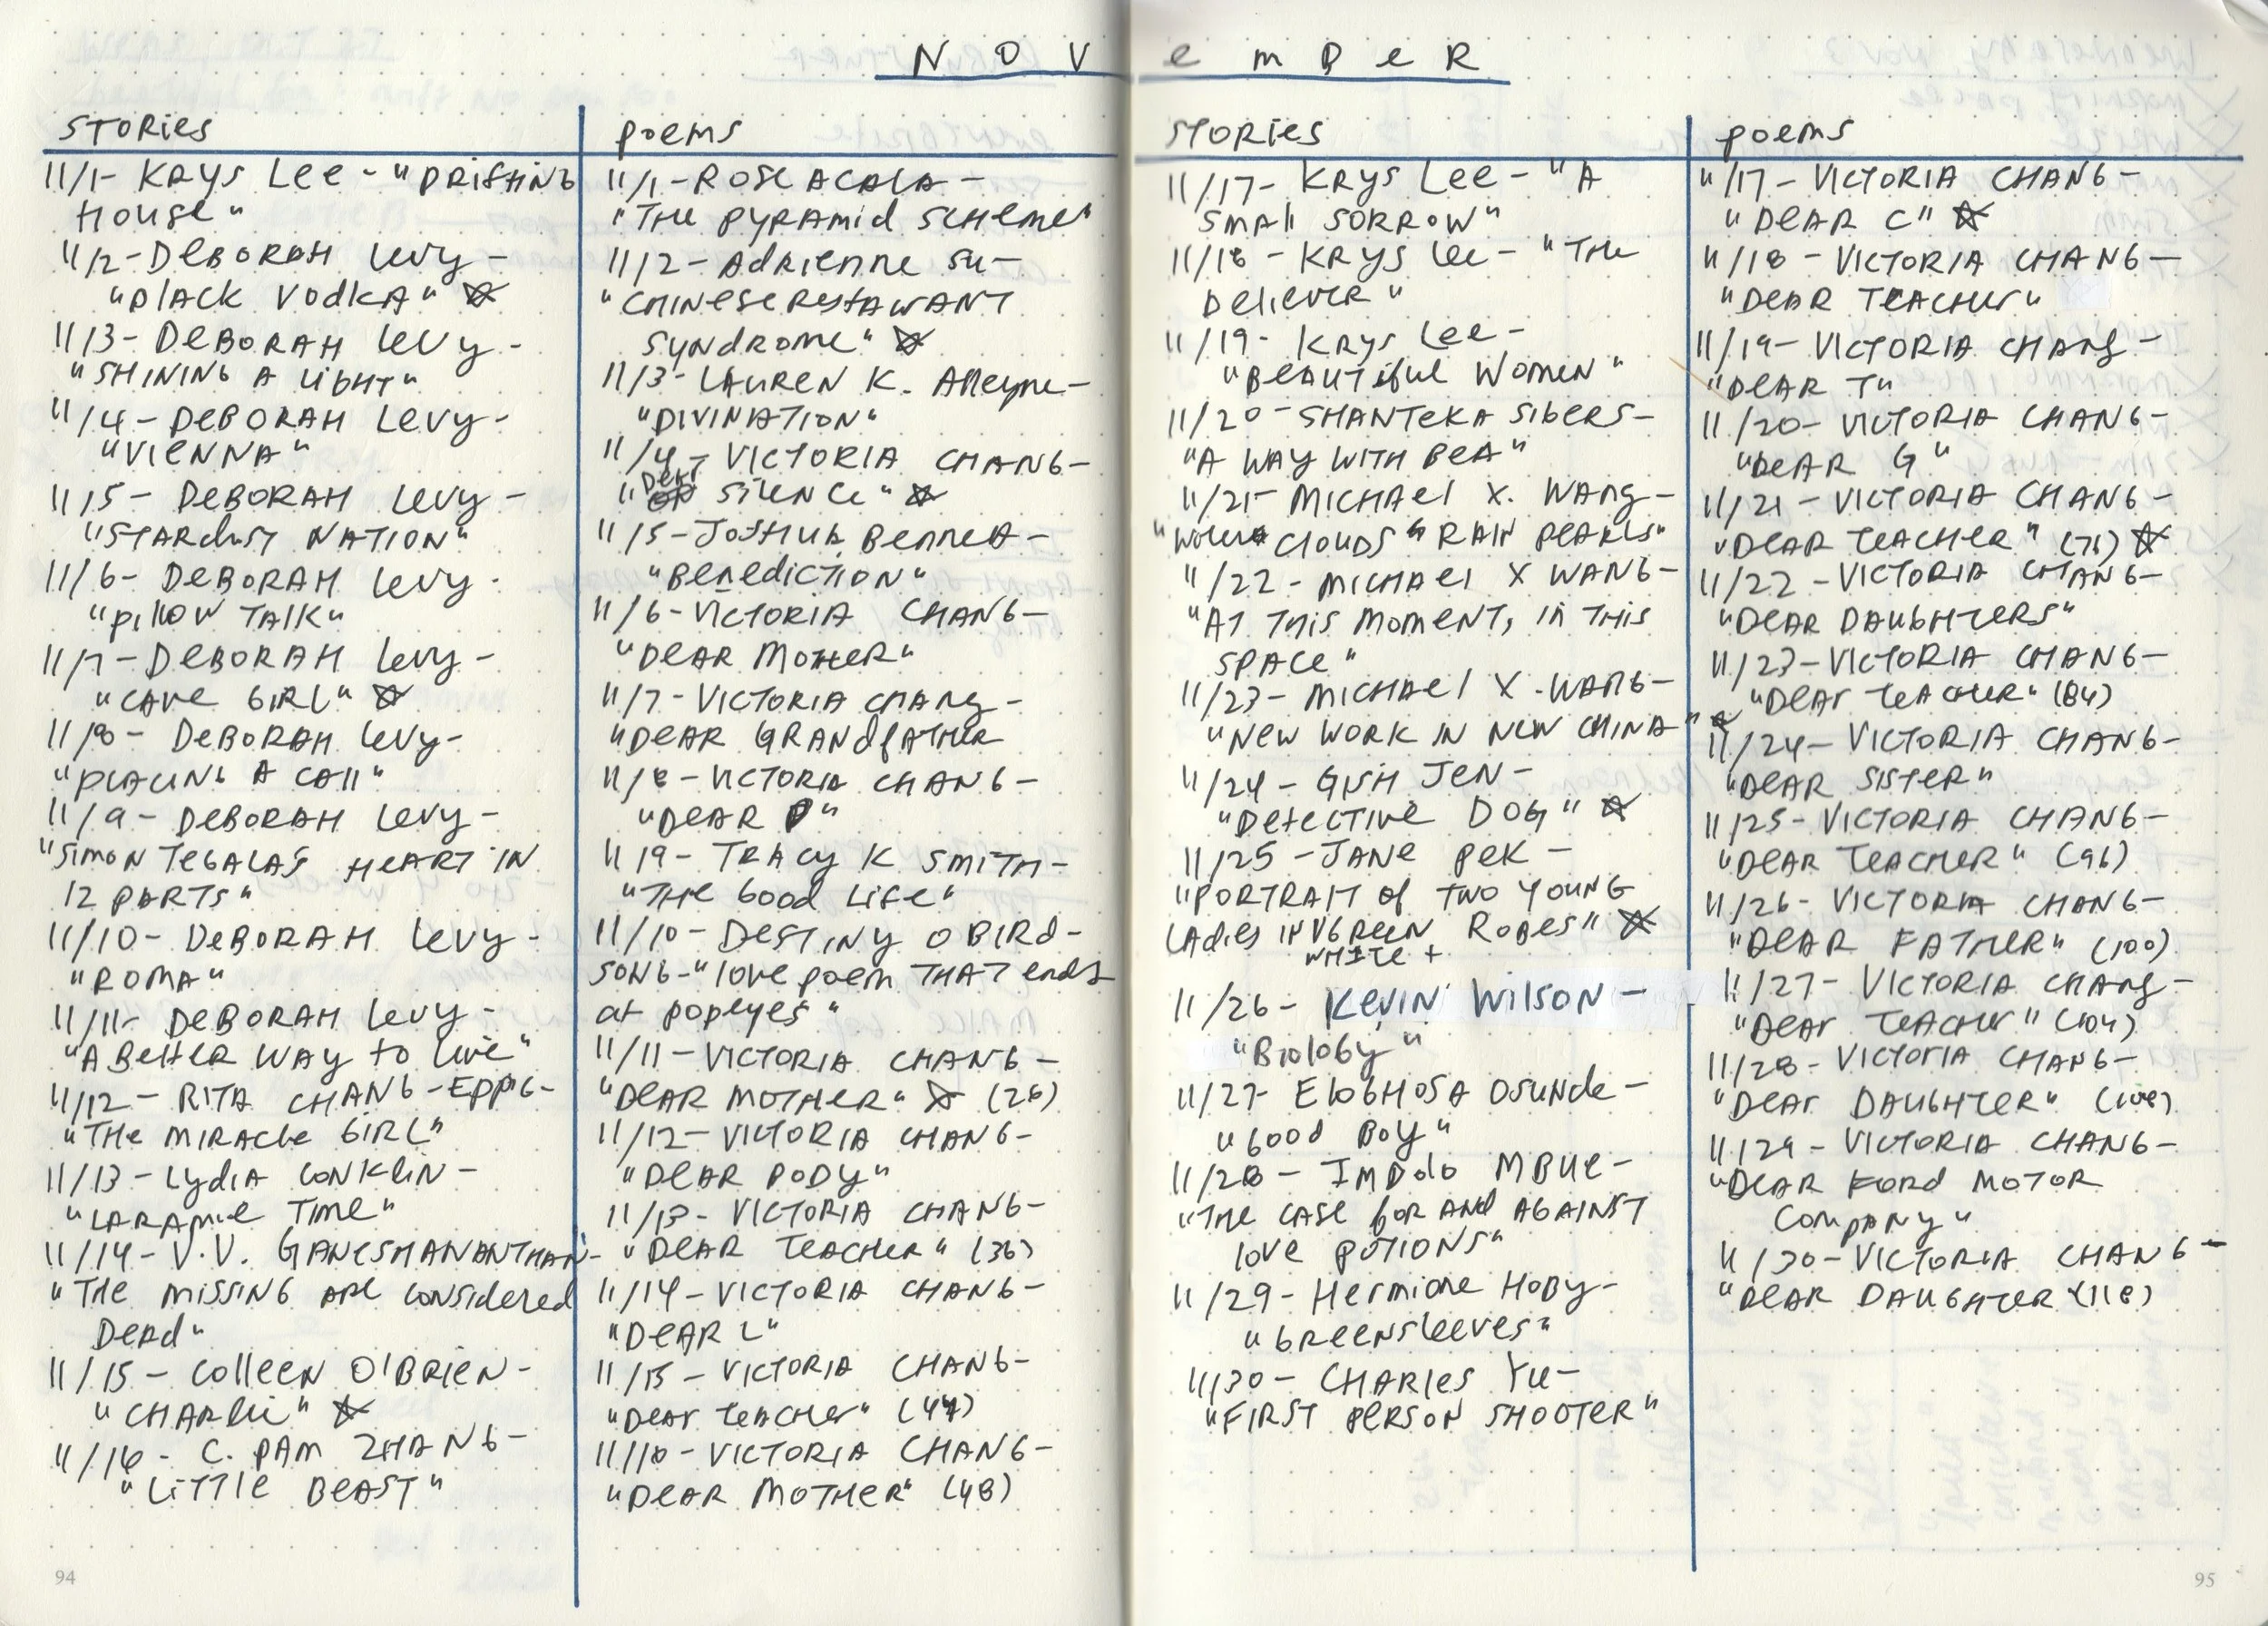 NOVEMBER
STORIES
11/1- KRYS Lee - "DRIFTING
HOUSE"
11/2- DEBORAH LEVY -
"BLACK VODKA" ☆
11/3- DEBORAH LEVY -
"SHINING A LIGHT"
11/4- DEBORAH LEVY -
"VIENNA"
11/5- DEBORAH LEVY -
"STARDUST NATION"
11/6- DEBORAH LEVY -
"PILLOW TALK"
11/7- DEBORAH LEVY -
"CAVE GIRL" ☆
11/8- DEBORAH LEVY -
"PLACING A CALL"
11/9- DEBORAH LEVY -
"SIMON TEGALA'S HEART IN
12 PARTS"
11/10- DEBORAH LEVY -
"ROMA"
11/11- DEBORAH LEVY -
"A BETTER WAY TO LIVE"
11/12- RITA CHANG-EPPIG-
"THE MIRACLE GIRL"
11/13- LYDIA CONKLIN -
"LARAMIE TIME"
11/14- V.V. GANESHANANTHAN-
"THE MISSING ARE CONSIDERED
DEAD"
11/15- COLLEEN O'BRIEN-
"CHARLIE" ☆
11/16- C. PAM ZHANG-
"LITTLE BEAST"
94
POEMS
11/1-ROSE ACALA -
"THE PYRAMID SCHEME"
11/2- ADRIENNE SU-
"CHINESE RESTAURANT
SYNDROME" ☆
11/3- LAUREN K. ALLEYNE-
"DIVINATION"
11/4- VICTORIA CHANG-
"DEAR SILENCE" ☆
11/5-JOSHUA BENNETT-
"BENEDICTION"
11/6-VICTORIA CHANG-
"DEAR MOTHER"
11/7- VICTORIA CHANG-
"DEAR GRANDFATHER
11/8- VICTORIA CHANG-
"DEAR P"
11/9- TRACY K SMITH-
"THE GOOD LIFE"
11/10- DESTINY O BIRD-
SONG-"LOVE POEM THAT ENDS
AT POPEYES"
11/11- VICTORIA CHANG-
"DEAR MOTHER" ☆ (26)
11/12- VICTORIA CHANG-
"DEAR BODY"
11/13- VICTORIA CHANG-
"DEAR TEACHER" (36)
11/14- VICTORIA CHANG-
"DEAR L"
11/15- VICTORIA CHANG-
"DEAR TEACHER" (47)
11/16- VICTORIA CHANG-
"DEAR MOTHER" (48)
STORIES
11/17- KRYS LEE - "A
SMALL SORROW"
11/18- KRYS LEE- "THE
BELIEVER"
11/19- KRYS LEE-
"BEAUTIFUL WOMEN"
11/20- SHANTEKA SIGERS-
"A WAY WITH BEA"
11/21- MICHAEL X. WANG-
"WHERE CLOUDS RAIN PEARLS"
11/22- MICHAEL X WANG-
"AT THIS MOMENT, IN THIS
SPACE"
11/23- MICHAEL X. WANG-
"NEW WORK IN NEW CHINA" ☆
11/24- GISH JEN-
"DETECTIVE DOG" ☆
11/25- JANE PEK-
"PORTRAIT OF TWO YOUNG
LADIES IN WHITE + GREEN ROBES" ☆
11/26- KEVIN WILSON-
"BIOLOGY"
11/27- ELOGHOSA OSUNDE-
"GOOD BOY"
11/28- IMBOLO MBUE-
"THE CASE FOR AND AGAINST
LOVE POTIONS"
11/29- HERMIONE HOBY-
"GREENSLEEVES"
11/30- CHARLES YU-
"FIRST PERSON SHOOTER"
POEMS
11/17- VICTORIA CHANG-
"DEAR C" ☆
11/18- VICTORIA CHANG-
"DEAR TEACHER"
11/19- VICTORIA CHANG-
"DEAR T"
11/20- VICTORIA CHANG-
"DEAR G"
11/21- VICTORIA CHANG-
"DEAR TEACHER" (76) ☆
11/22- VICTORIA CHANG-
"DEAR DAUGHTERS"
11/23- VICTORIA CHANG-
"DEAR TEACHER" (84)
11/24- VICTORIA CHANG-
"DEAR SISTER"
11/25- VICTORIA CHANG-
"DEAR TEACHER" (96)
11/26- VICTORIA CHANG-
"DEAR FATHER" (100)
11/27- VICTORIA CHANG-
"DEAR TEACHER" (104)
11/28- VICTORIA CHANG-
"DEAR DAUGHTER" (108)
11/29- VICTORIA CHANG-
"DEAR FORD MOTOR
COMPANY"
11/30- VICTORIA CHANG-
"DEAR DAUGHTER" (118)
95